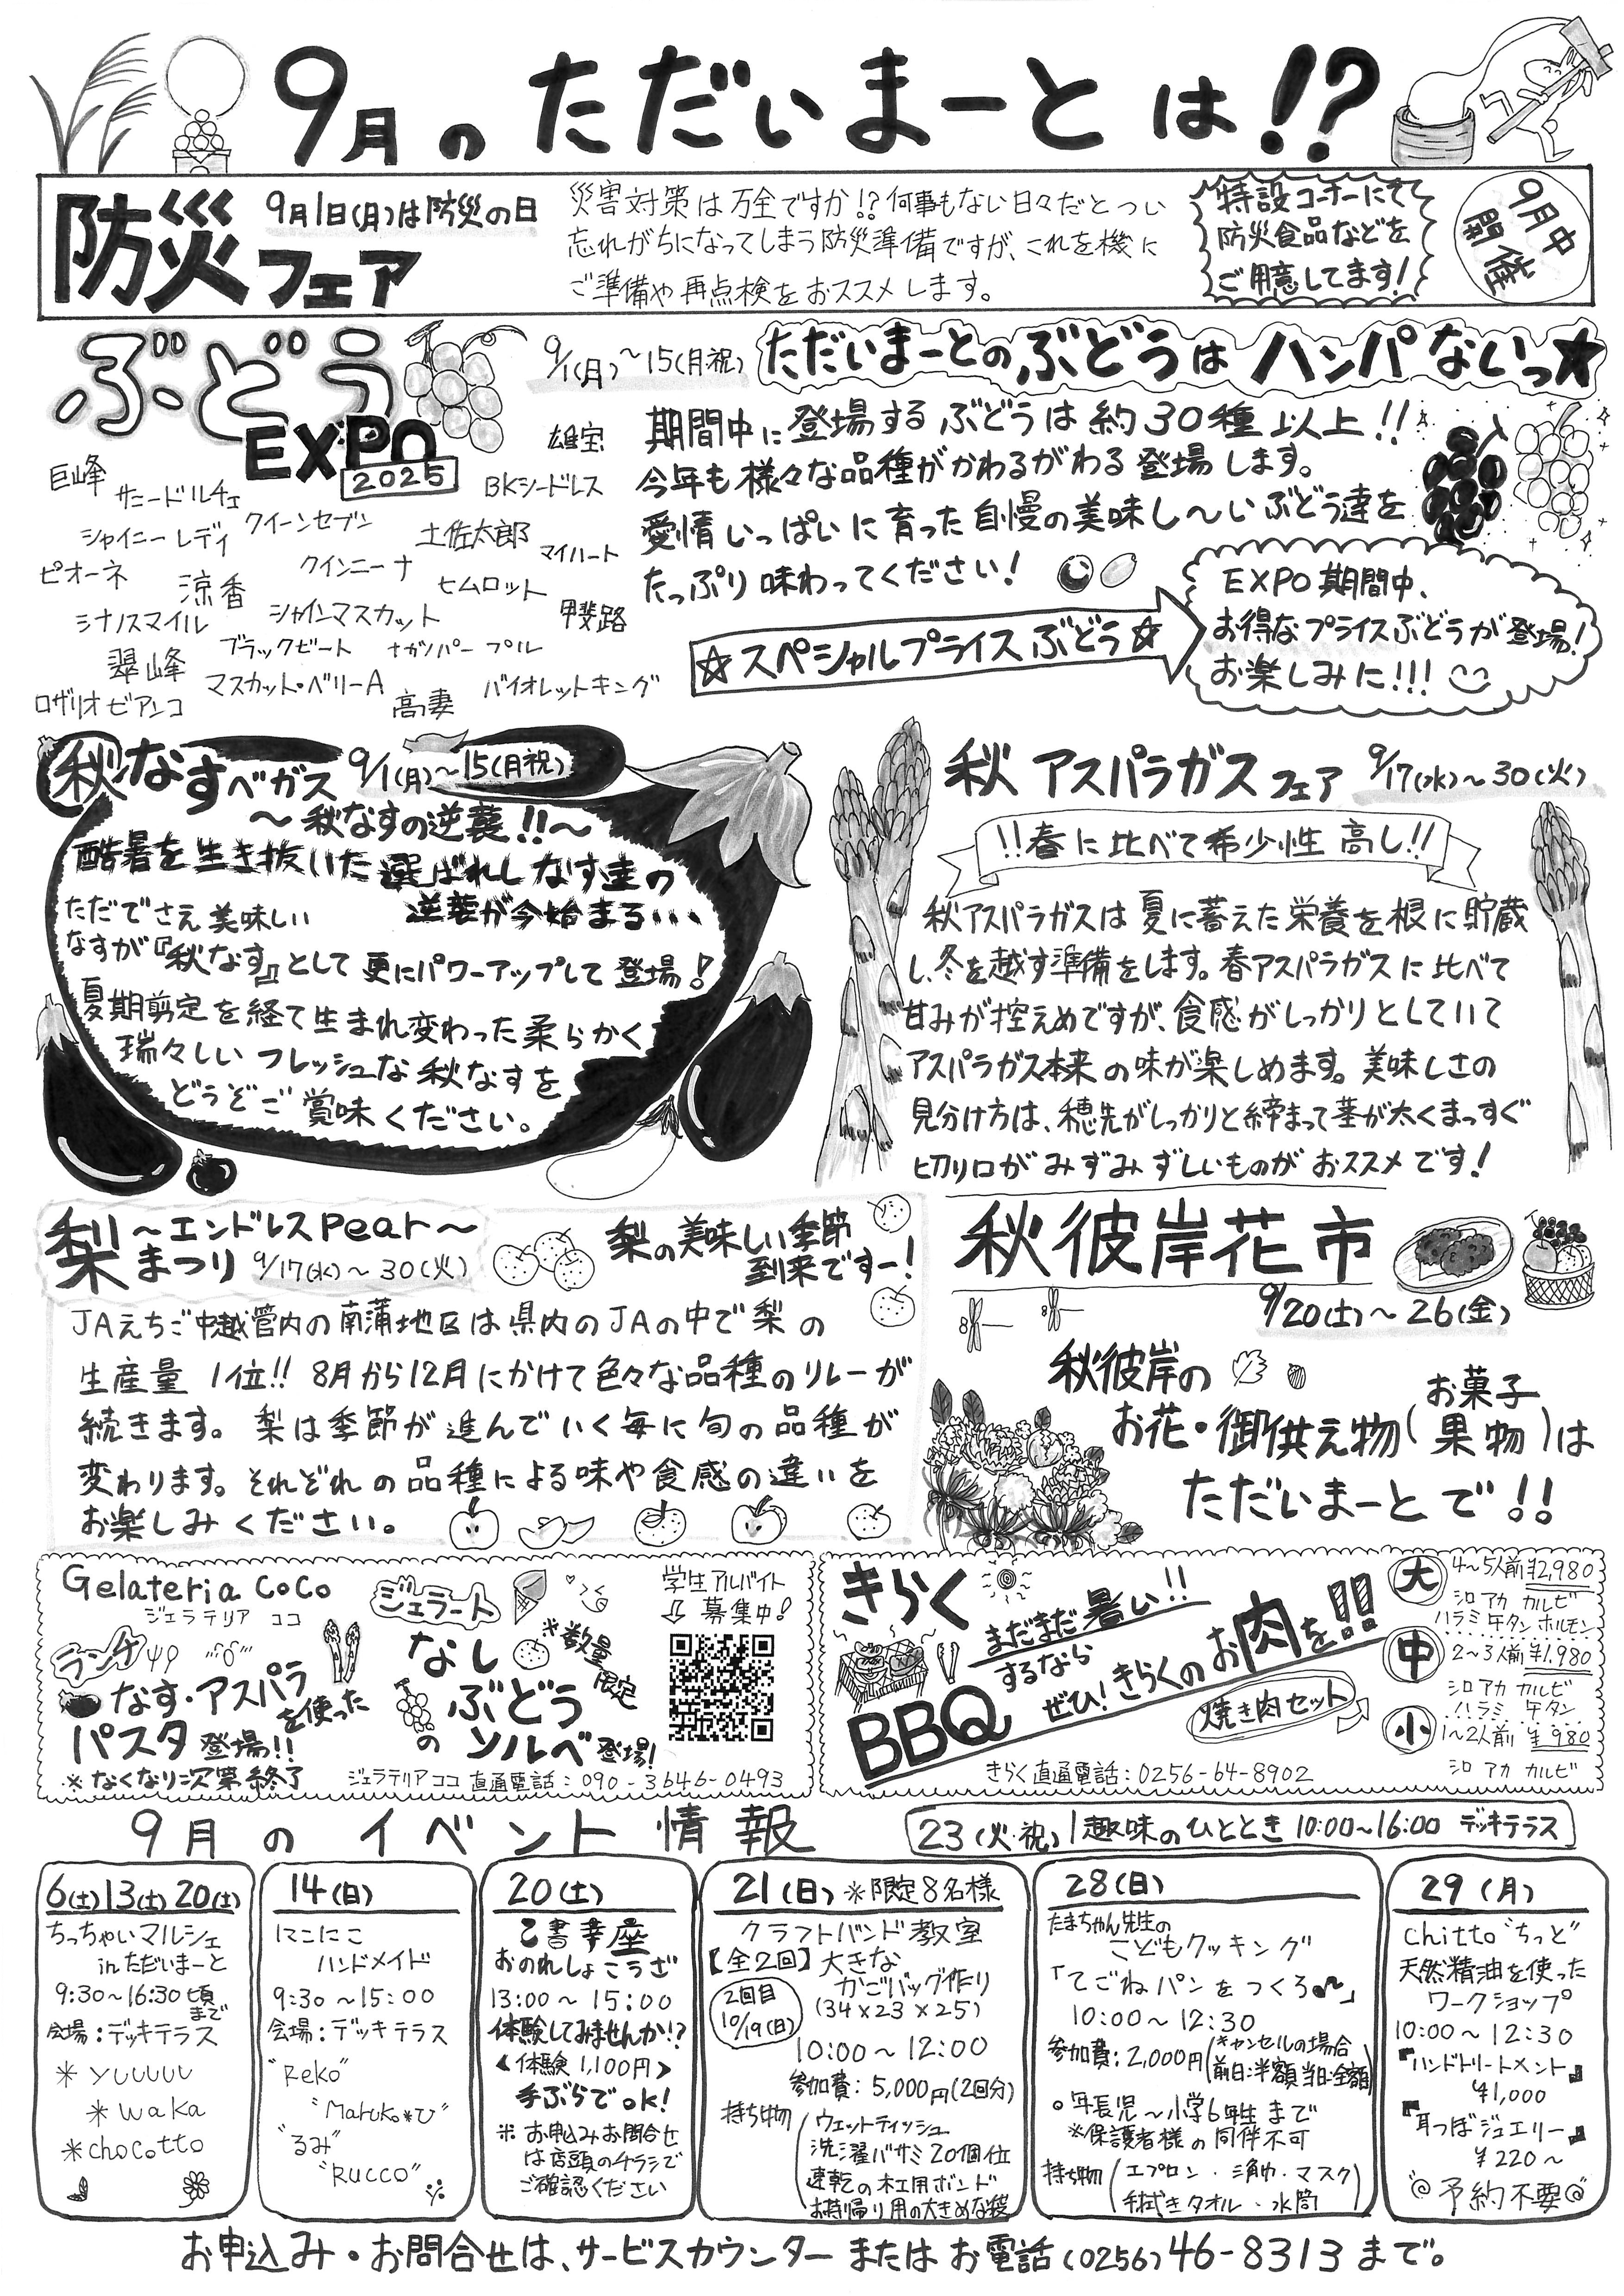 9月のただいまーとは!?
防災フェア
9月1日(月)は防災の日
災害対策は万全ですか!?何事もない日々だとつい
忘れがちになってしまう防災準備ですが、これを機に
ご準備や再点検をおススメします。
特設コーナーにて
防災食品などを
ご用意してます!
9月中
開催
ぶどう
EXPO
2025
9/1(月)~15(月祝)
ただいまーとのぶどうはハンパないっ★
期間中に登場するぶどうは約30種以上!!
今年も様々な品種がかわるがわる登場します。
愛情いっぱいに育った自慢の美味し〜いぶどう達を
たっぷり味わってください!
雄宝
巨峰
サニードルチェ
BKシードレス
シャイニーレディ
クイーンセブン
土佐太郎
マイハート
ピオーネ
涼香
クインニーナ
ヒムロット
シナノスマイル
シャインマスカット
甲斐路
翠峰
ブラックビート
ナガノパープル
ロザリオビアンコ
マスカット・ベリーA
高妻
バイオレットキング
☆スペシャルプライスぶどう☆
EXPO期間中、
お得なプライスぶどうが登場!
お楽しみに!!!
秋なすベガス 9/1(月)~15(月祝)
~秋なすの逆襲!!~
酷暑を生き抜いた選ばれしなす達の
逆襲が今始まる...
ただでさえ美味しい
なすが『秋なす』として更にパワーアップして登場!
夏期剪定を経て生まれ変わった柔らかく
瑞々しいフレッシュな秋なすを
どうぞご賞味ください。
秋アスパラガスフェア 9/17(水)~30(火)
!!春に比べて希少性高し!!
秋アスパラガスは夏に蓄えた栄養を根に貯蔵
し、冬を越す準備をします。春アスパラガスに比べて
甘みが控えめですが、食感がしっかりとしていて
アスパラガス本来の味が楽しめます。美味しさの
見分け方は、穂先がしっかりと締まって茎が太くまっすぐ
切り口がみずみずしいものがおススメです!
梨まつり ~エンドレスPear~
9/17(水)~30(火)
梨の美味しい季節
到来ですー!
JAえちご中越管内の南蒲地区は県内のJAの中で梨の
生産量1位!!8月から12月にかけて色々な品種のリレーが
続きます。梨は季節が進んでいく毎に旬の品種が
変わります。それぞれの品種による味や食感の違いを
お楽しみください。
秋彼岸花市
9/20(土)~26(金)
秋彼岸の
お花・御供え物(お菓子 果物)は
ただいまーとで!!
Gelateria CoCo
ジェラテリア ココ
ランチ
なす・アスパラ
を使った
パスタ登場!!
※なくなり次第終了
ジェラート
なし
ぶどう
の ソルベ登場!
※数量
限定
学生アルバイト
募集中!
ジェラテリアココ直通電話:090-3646-0493
きらく
まだまだ暑い!!
BBQするなら
ぜひ!きらくのお肉を!!
焼き肉セット
大 4~5人前¥2,980
シロ アカ カルビ
ハラミ 牛タン ホルモン
中 2~3人前¥1,980
シロ アカ カルビ
ハラミ 牛タン
小 1~2人前¥980
シロ アカ カルビ
きらく直通電話:0256-64-8902
9月のイベント情報
23(火・祝)趣味のひととき10:00~16:00デッキテラス
6(土)13(土)20(土)
ちっちゃいマルシェ
inただいまーと
9:30~16:30頃まで
会場:デッキテラス
*yuuuuu
*waka
*chocotto
14(日)
にこにこ
ハンドメイド
9:30~15:00
会場:デッキテラス
"Reko"
"Maruko*ひ"
"るみ"
"Rucco"
20(土)
己書幸座
おのれしょこうざ
13:00~15:00
体験してみませんか!?
<体験1,100円>
手ぶらでOK!
※お申込みお問合せ
は店頭のチラシで
ご確認ください
21(日)※限定8名様
クラフトバンド教室
【全2回】大きな
かごバッグ作り
(34×23×25)
2回目
10/19(日)
10:00~12:00
参加費:5,000円(2回分)
持ち物
ウェットティッシュ
洗濯バサミ20個位
速乾の木工用ボンド
お持帰り用の大きめな袋
28(日)
たまちゃん先生の
こどもクッキング
「てごねパンをつくろ♪」
10:00~12:30
参加費:2,000円(キャンセルの場合 前日:半額 当日:全額)
○年長児~小学6年生まで
※保護者様の同伴不可
持ち物(エプロン・三角巾・マスク
手拭きタオル・水筒)
29(月)
chitto"ちっと"
天然精油を使った
ワークショップ
10:00~12:30
『ハンドトリートメント』
¥1,000
『耳つぼジュエリー』
¥220~
◎予約不要◎
お申込み・お問合せは、サービスカウンターまたはお電話(0256)46-8313まで。